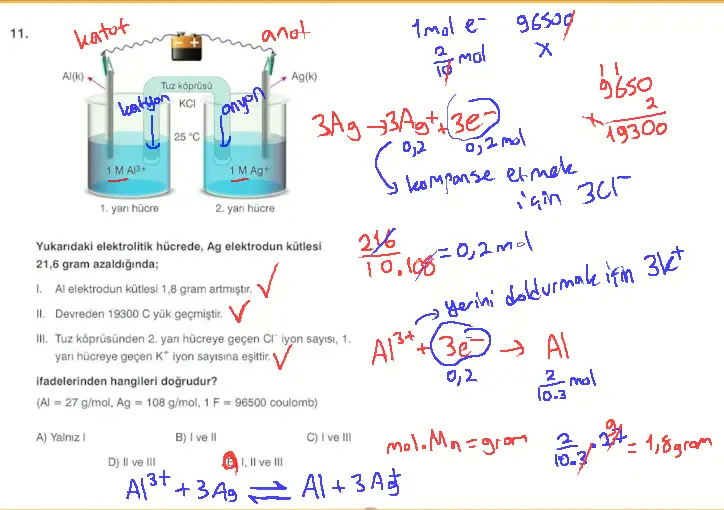 11.
katot
anot
- +
Al(k)
Ag(k)
Tuz köprüsü
KCl
katyon
anyon
25 °C
1 M Al3+
1 M Ag+
1. yarı hücre
2. yarı hücre
Yukarıdaki elektrolitik hücrede, Ag elektrodun kütlesi
21,6 gram azaldığında;
I. Al elektrodun kütlesi 1,8 gram artmıştır.
II. Devreden 19300 C yük geçmiştir.
III. Tuz köprüsünden 2. yarı hücreye geçen Cl⁻ iyon sayısı, 1.
yarı hücreye geçen K⁺ iyon sayısına eşittir.
ifadelerinden hangileri doğrudur?
(Al = 27 g/mol, Ag = 108 g/mol, 1 F = 96500 coulomb)
A) Yalnız I
B) I ve II
C) I ve III
D) II ve III
E) I, II ve III
Al3+ + 3Ag ⇌ Al + 3Ag+
1 mol e⁻ 96500
2/10 mol X
9650
x 2
19300
3Ag → 3Ag+ + 3e⁻
0,2 0,2 mol
kompanse etmek
için 3Cl⁻
216/10.108 = 0,2 mol
yerini doldurmak için 3K+
Al3+ + 3e⁻ → Al
0,2 2/10.3 mol
mol.Mn = gram 2/10.3 . 27 9 = 1,8 gram